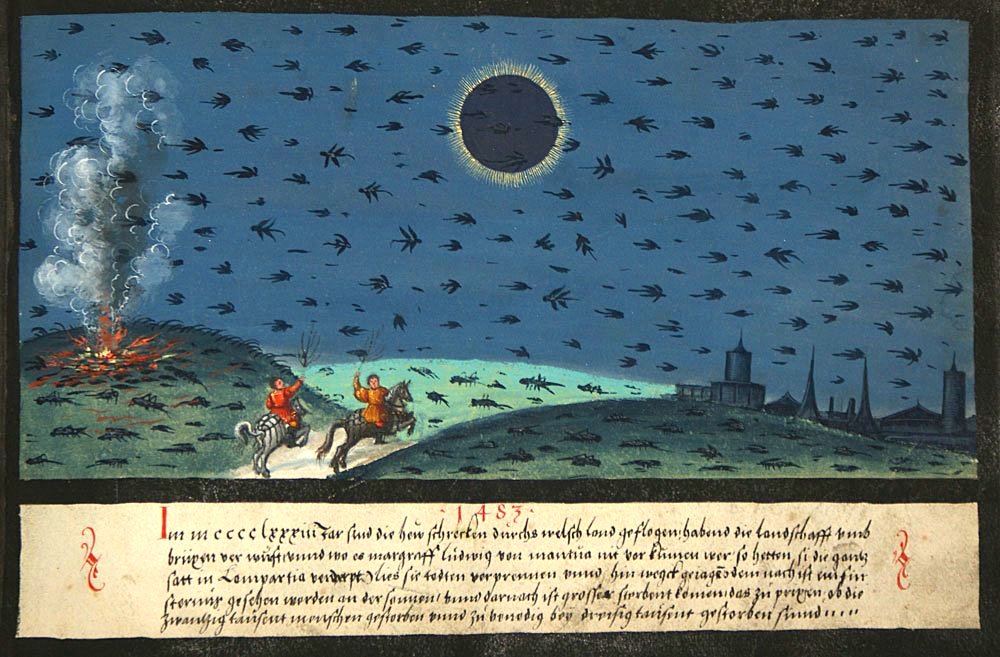 · 1483 ·
Im mcccclxxxiii Jar sind die hew schrecken durchs welsch land geflogen, habend die landschafft umb
brixen ver wüst vnnd wo es margraff ludwig von mantua nit vor kumen wer so hetten si die gantz
satt in Lompartia verderpt, lies sie todten verprennen vnnd hin weyck geiagen dem nach ist ein fin
sternüs gesehen worden an der sonnen vnnd darnach ist grosser sterbent komen, das zu prixen ob die
zwantzig tausent menschen gestorben vnnd zu venedig bey dreisig tausent gestorben sinnd